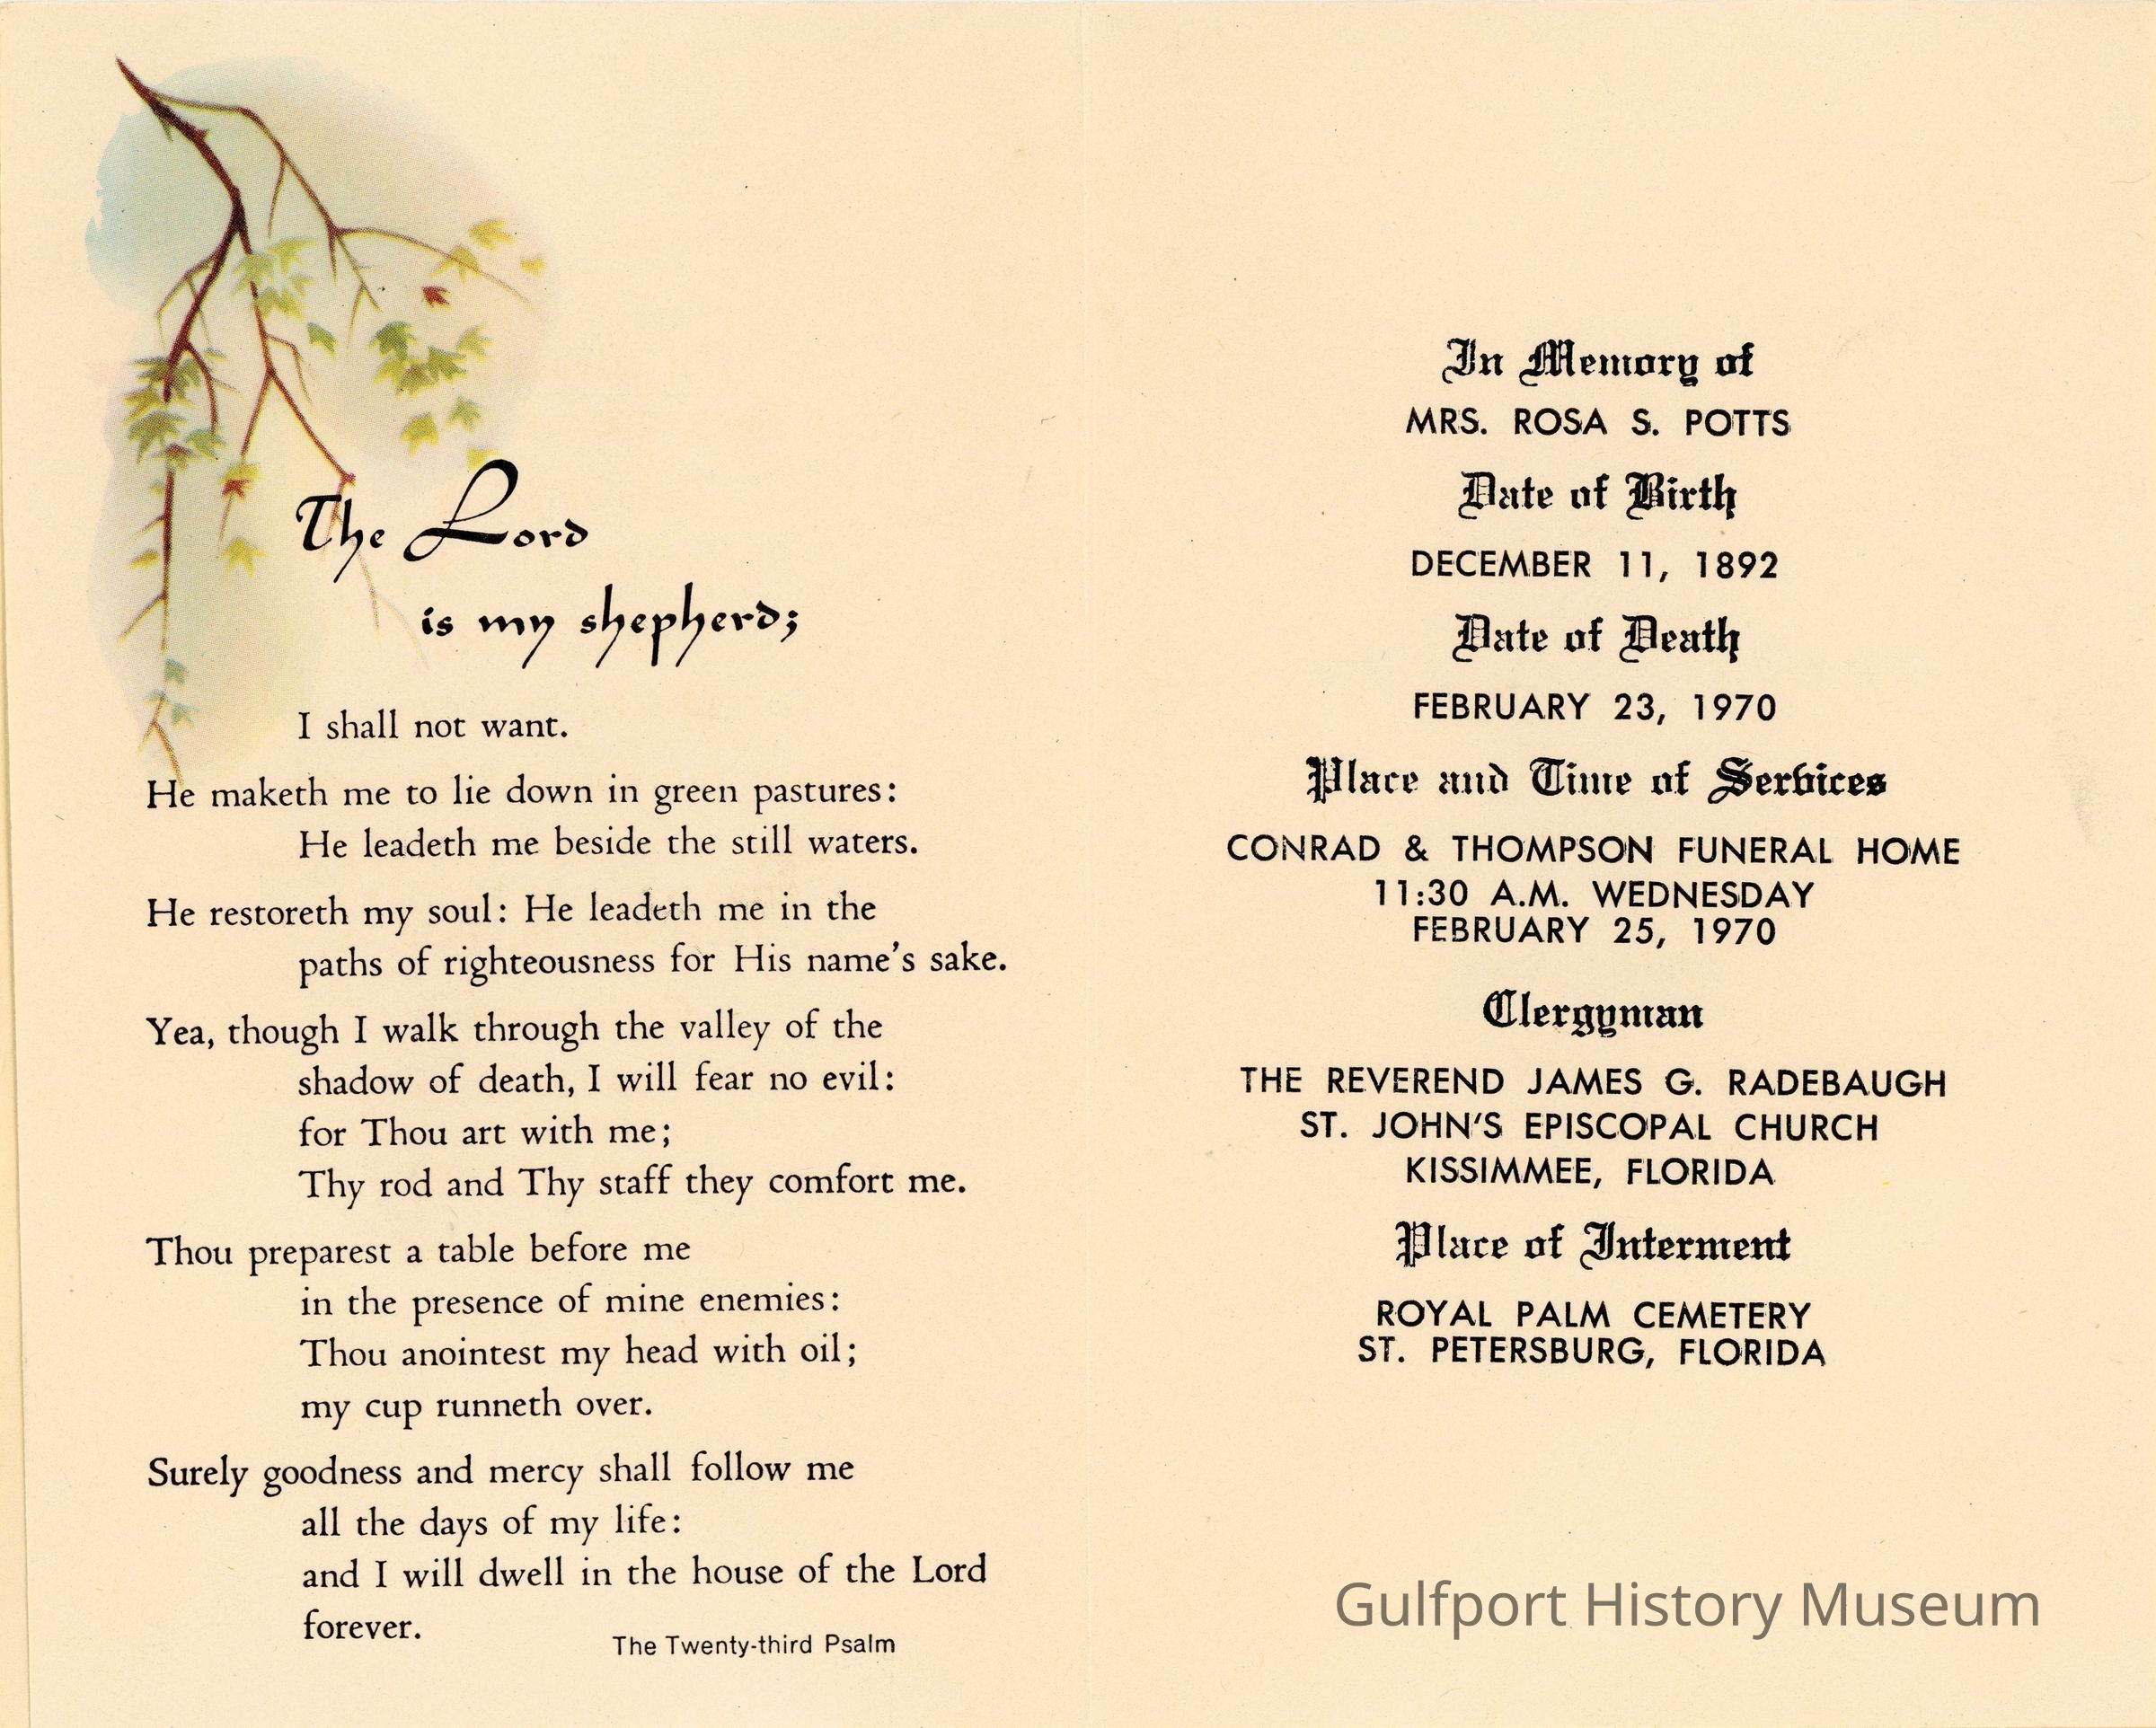 The Lord
is my shepherd;
I shall not want.
He maketh me to lie down in green pastures:
He leadeth me beside the still waters.
He restoreth my soul: He leadeth me in the
paths of righteousness for His name's sake.
Yea, though I walk through the valley of the
shadow of death, I will fear no evil:
for Thou art with me;
Thy rod and Thy staff they comfort me.
Thou preparest a table before me
in the presence of mine enemies:
Thou anointest my head with oil;
my cup runneth over.
Surely goodness and mercy shall follow me
all the days of my life:
and I will dwell in the house of the Lord
forever.
The Twenty-third Psalm
In Memory of
MRS. ROSA S. POTTS
Date of Birth
DECEMBER 11, 1892
Date of Death
FEBRUARY 23, 1970
Place and Time of Services
CONRAD & THOMPSON FUNERAL HOME
11:30 A.M. WEDNESDAY
FEBRUARY 25, 1970
Clergyman
THE REVEREND JAMES G. RADEBAUGH
ST. JOHN'S EPISCOPAL CHURCH
KISSIMMEE, FLORIDA
Place of Interment
ROYAL PALM CEMETERY
ST. PETERSBURG, FLORIDA
Gulfport History Museum